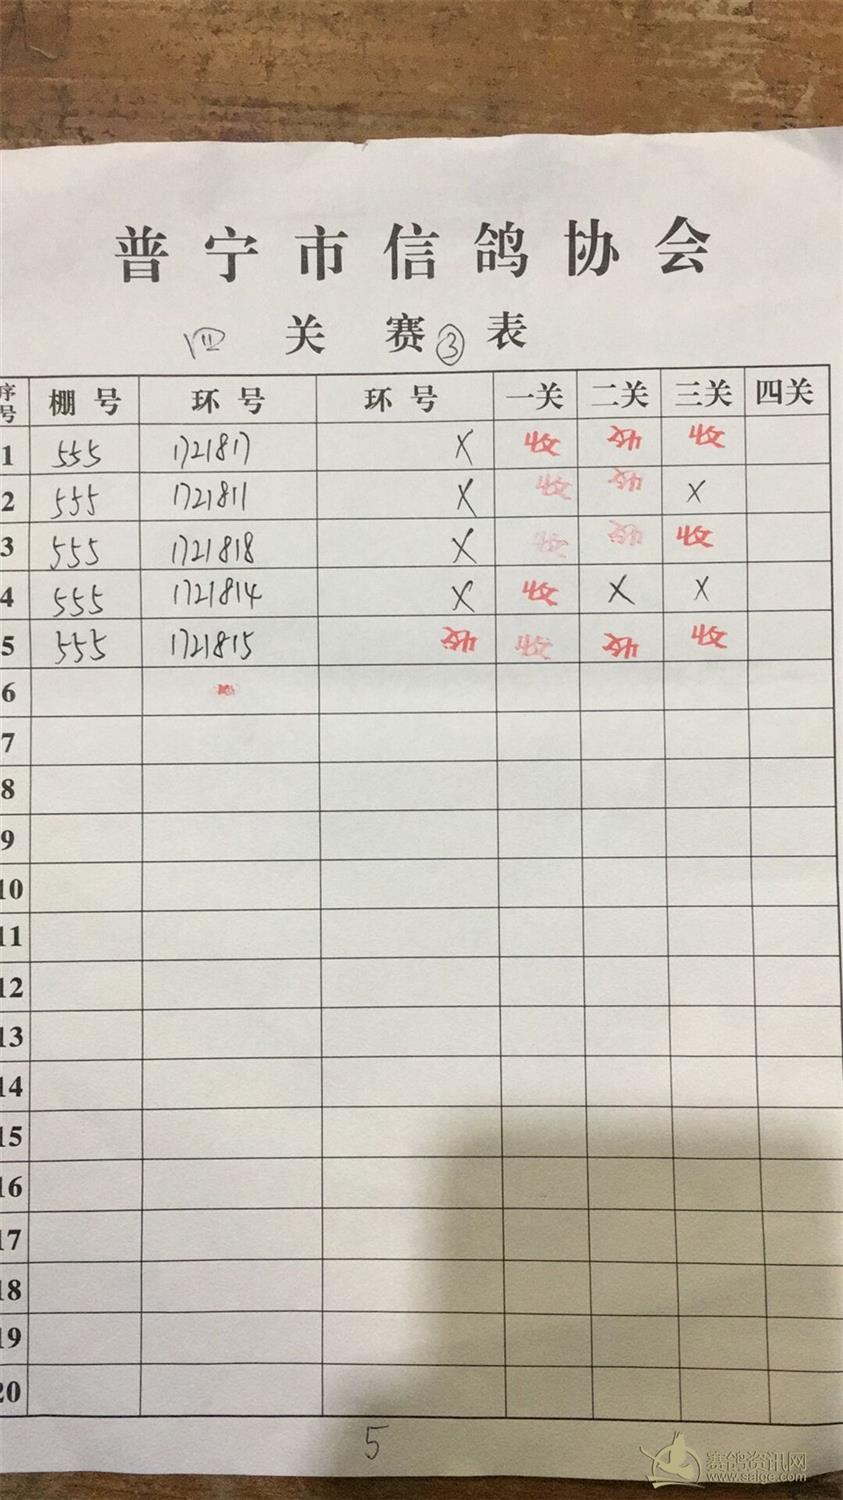 普宁市信鸽协会
四 关 赛 ③ 表
序号 棚号 环号 环号 一关 二关 三关 四关
1 555 1721817 X 收 收 收
2 555 1721811 X 收 收 X
3 555 1721818 X 收 收 收
4 555 1721814 X 收 X X
5 555 1721815 收 收 收 收
6
7
8
9
10
11
12
13
14
15
16
17
18
19
20
5
赛鸽资讯网
www.saige.com